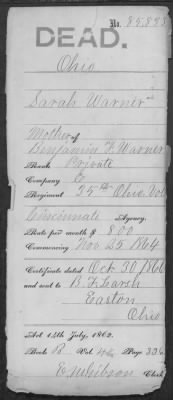 No. 85,828
DEAD.
Ohio
Sarah Warner
Mother of
Benjamin F. Warner
Rank Private
Company E
Regiment 35th Ohio Vol
Cincinnati Agency.
Rate per month $ 8.00
Commencing Nov 25 1864
Certificate dated Oct 30/1866
and sent to B. F. Larsh
Easton
Ohio
Act 14th July, 1862.
Book B Vol. 46 Page 336
Clerk